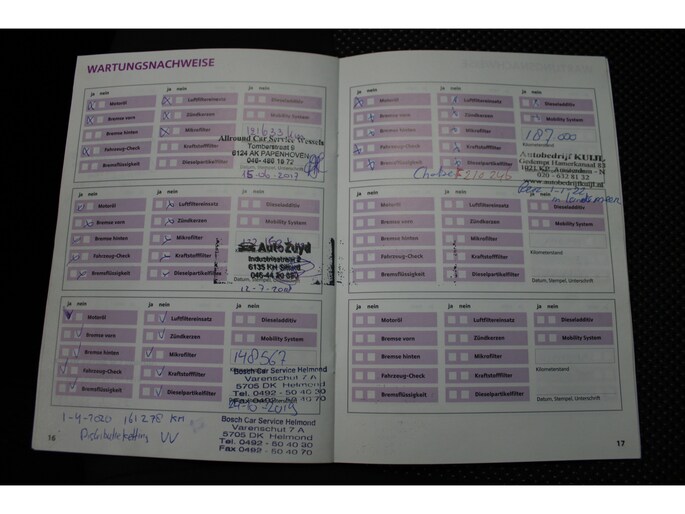 WARTUNGSNACHWEISE
ja nein
Motoröl
Bremse vorn
Bremse hinten
Fahrzeug-Check
Bremsflüssigkeit
Luftfiltereinsatz
Zündkerzen
Mikrofilter
Kraftstofffilter
Dieselpartikelfilter
ja nein
Dieseladditiv
Mobility System
Allround Car Service Wessch
6124 AK PAPENHOVEN
15-06-2017
ja nein
Motoröl
Bremse vorn
Bremse hinten
Fahrzeug-Check
Bremsflüssigkeit
Luftfiltereinsatz
Zündkerzen
Mikrofilter
Kraftstofffilter
Dieselpartikelfilter
ja nein
Dieseladditiv
Mobility System
Auto Zuyd
Industriestraat 2
6135 KH Sittard
Datum, Stempel, Unterschrift
12-7-2018
ja nein
Motoröl
Bremse vorn
Bremse hinten
Fahrzeug-Check
Bremsflüssigkeit
Luftfiltereinsatz
Zündkerzen
Mikrofilter
Kraftstofffilter
Dieselpartikelfilter
ja nein
Dieseladditiv
Mobility System
148567
Bosch Car Service Helmond
Varenschut 7 A
5705 DK Helmond
Tel. 0492 - 50 40 30
Fax 0492 - 50 40 70
Bosch Car Service Helmond
Varenschut 7 A
5705 DK Helmond
Tel. 0492 - 50 40 30
Fax 0492 - 50 40 70
1-4-2020 161278 KM
Distributieketting VV
16
ja nein
Motoröl
Bremse vorn
Bremse hinten
Fahrzeug-Check
Bremsflüssigkeit
ja nein
Luftfiltereinsatz
Zündkerzen
Mikrofilter
Kraftstofffilter
Dieselpartikelfilter
ja nein
Dieseladditiv
Mobility System
187.000
Autobedrijf KUIJL
Gedempt Hamerkanaal 83
1021 KP Amsterdam - N
020 - 632 81 32
www.autobedrijfkuijl.nl
ja nein
Motoröl
Bremse vorn
Bremse hinten
Fahrzeug-Check
Bremsflüssigkeit
Luftfiltereinsatz
Zündkerzen
Mikrofilter
Kraftstofffilter
Dieselpartikelfilter
ja nein
Dieseladditiv
Mobility System
Kilometerstand
Datum, Stempel, Unterschrift
ja nein
Motoröl
Bremse vorn
Bremse hinten
Fahrzeug-Check
Bremsflüssigkeit
ja nein
Luftfiltereinsatz
Zündkerzen
Mikrofilter
Kraftstofffilter
Dieselpartikelfilter
ja nein
Dieseladditiv
Mobility System
Kilometerstand
Datum, Stempel, Unterschrift
17